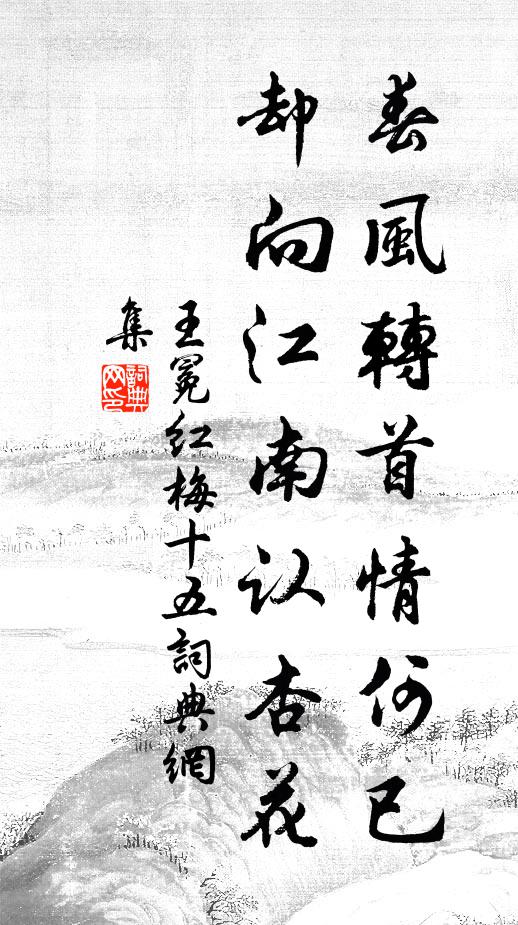 春風轉首情何已
却向江南认杏花
王冕红梅十五詞典網
集
詞典
网印